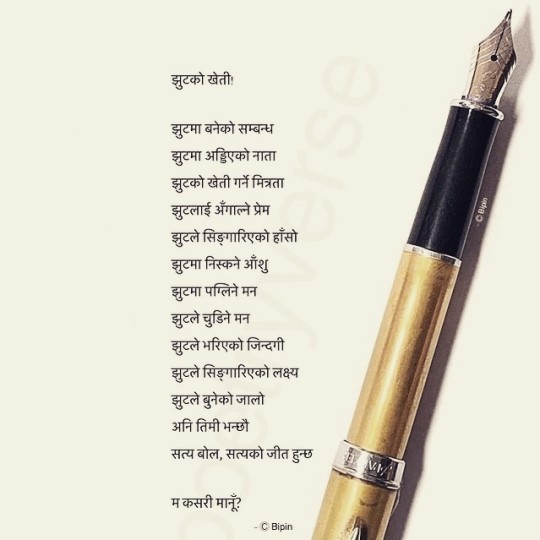 झुटको खेती!
झुटमा बनेको सम्बन्ध
झुटमा अड्डिएको नाता
झुटको खेती गर्ने मित्रता
झुटलाई अँगाल्ने प्रेम
झुटले सिङ्गारिएको हाँसो
झुटमा निस्कने आँशु
झुटमा पग्लिने मन
झुटले चुडिने मन
झुटले भरिएको जिन्दगी
झुटले सिङ्गारिएको लक्ष्य
झुटले बुनेको जालो
अनि तिमी भन्छौ
सत्य बोल, सत्यको जीत हुन्छ
म कसरी मानूँ?
- © Bipin
- © Bipin